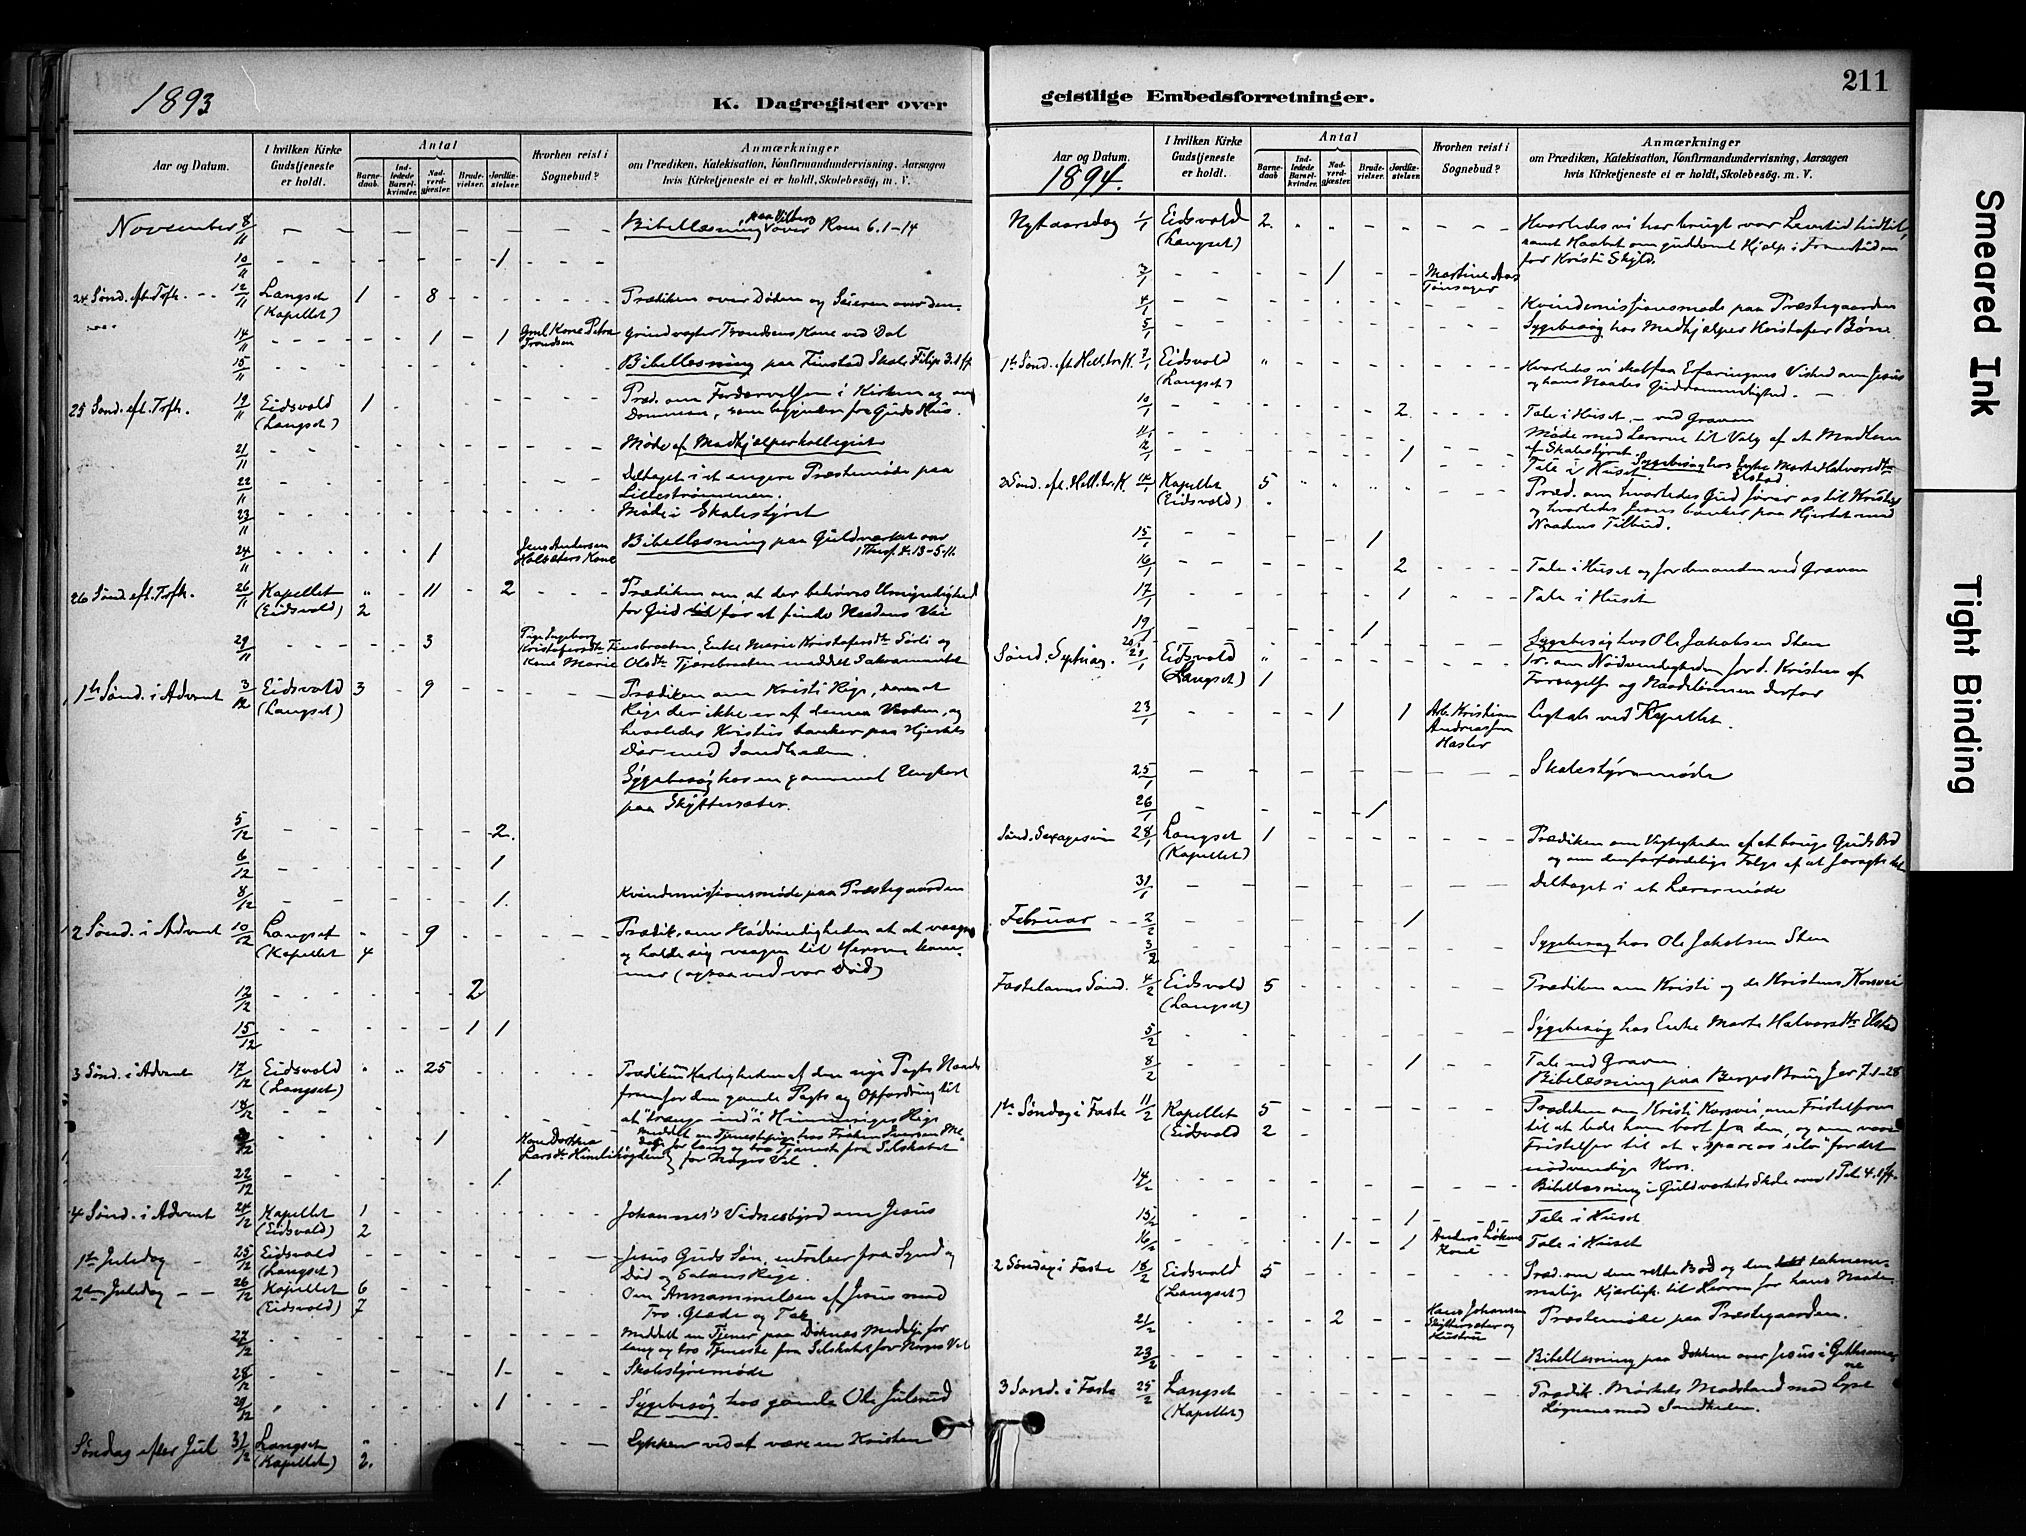 1893
K. Dagregister over
Aar og Datum.
I hvilken Kirke Gudstjeneste er holdt.
Antal
Barne-daab.
Ind-ledede Barsel-kvinder.
Nad-verd-gjester.
Brude-vielser.
Jordfæ-stelser.
Hvorhen reist i Sognebud?
Anmærkninger
om Prædiken, Katekisation, Konfirmandundervisning, Aarsagen
hvis Kirketjeneste ei er holdt, Skolebesøg, m. V.
November 8/11 Bibellæsning paa over Rom 6.1-14
10/11 1
24 Sønd. eft. Trft. 12/11 Langset (Kapellet) 1 8 Prædiken over Døden og Seieren over den
14/11 1 1 Kone Petra Trondsen Trondsens Kone ved Dal
15/11 Bibellæsning paa Finstad Skole Filip. 3.1 ff
25 Sønd. eft. Trft. 19/11 Eidsvold (Langset) 1 Præd. om Fordærvelsen i Kirken og om
Dommen, som begynder fra Guds Hus.
21/11 Møde af Medhjælperkollegiet
22/11 Deltaget i et engere Præstemøde paa
Lillestrømmen.
23/11 Møde i Skolestyret
24/11 1 Jens Andersen Kone Bibellæsning paa Guldverket over
1 Thess. 4.13-5.11
26 Sønd. eft. Trft. 26/11 Kapellet (Eidsvold) 2 11 2 Prædiken om at der behøves Umyndighed
for Gud for at finde Naadens Vei
29/11 3 Enke Marie Kristofersdtr Sørli og
Kone Marie Olsdtr meddelt Sakramentet
1ste Sønd. i Advent 3/12 Eidsvold (Langset) 3 9 Prædiken om Kristi Rige, som et
Rige der ikke er af denne Verden, og
hvorledes Kristus banker paa Hjertets
Dør med Sandheden.
Sygebesøg hos en gammel Ungkarl
paa Skyttersæter.
5/12 2.
6/12 1
8/12 1. Kvindemissionsmøde paa Præstegaarden
2 Sønd. i Advent 10/12 Langset (Kapellet 4 9 Prædik. om Nødvendigheden af at vaagne
og holde sig vaagen til Herren kom-
mer (ogsaa ved vor Død)
12/12 2
15/12 1 1
3 Sønd. i Advent 17/12 Eidsvold (Langset) 25 Prædiken Herligheden af den nye Pagts Naade
fremfor den gamle Pagts og Opfordring til
18/12 at "trænge ind" i Himmeriges Rige
1 Kone Dorthea Larsdtr meddelt en Tjenestepige hos Frøken Iversen Me-
dalje for lang og tro Tjeneste fra Selskabet
for Norges Vel
22/12 1.
4 Sønd. i Advent 24/12 Kapellet (Eidsvold) 1 2 Johannes's Vidnesbyrd om Jesus
1ste Juledag 25/12 Eidsvold (Langset) Jesus Guds Søn, en Frelser fra Synd og
Død og Satans Rige.
2den Juledag 26/12 Kapellet (Eidsvold) 6 7 Om Annammelsen af Jesus med
Tro, Glæde og Tak
27/12 meddelt en Tjener paa Doknæs Medalje for
lang og tro Tjeneste fra Selskabet for Norges Vel
28/12 1 Skolestyremøde
29/12 1 Sygebesøg hos gamle Ole Julsrud
Søndag efter Jul 31/12 Langset (Kapellet) 2. Lykken ved at være en Kristen
geistlige Embedsforretninger.
211
Aar og Datum.
1894.
I hvilken Kirke Gudstjeneste er holdt.
Antal
Barne-daab
Ind-ledede Barsel-kvinder.
Nad-verd-gjester.
Brude-vielser.
Jordfæ-stelser.
Hvorhen reist i Sognebud?
Anmærkninger
om Prædiken, Katekisation, Konfirmandundervisning, Aarsagen
hvis Kirketjeneste ei er holdt, Skolebesøg, m. V.
Nytaarsdag 1/1 Eidsvold (Langset) 2. Hvorledes vi har brugt vor Levetid hidtil,
samt Haabet om guddomel Hjælp i Fremtiden
for Kristi Skyld.
3/1 1 Martine Aas
4/1 Kvindemissionsmøde paa Præstegaarden
5/1 Sygebesøg hos Medhjælper Kristofer Børse
1ste Sønd. eft. Hell. tr. K. 7/1 Eidsvold (Langset) Hvorledes vi skal faa Erfaringens Vished om Jesus
og hans Naades Guddommelighed.
10/1 2 Tale i Huset – ved Graven
11/1 Møde med Lærerne til Valg af et Medlem
af Skolestyret
12/1 1 Tale i Huset Sygebesøg hos Enke Marte Halvorsdtr
Elstad.
2 Sønd. eft. Hell. tr. K. 14/1 Kapellet (Eidsvold) 5 Præd. om hvorledes Gud fører os til Kristus
og hvorledes Jesus banker paa Hjertet med
Naadens Tilbud.
15/1 1
16/1 2 Tale i Huset og for den anden ved Graven
17/1 1 Tale i Huset
19/1 1
20/1 Sygebesøg hos Ole Jakobsen Sten
Sønd. Septuag. 21/1 Eidsvold (Langset) 1 Pr. om Nødvendigheden for d. Kristen af
Forsagelse og Naadelønnen derfor
23/1 1 1 Arb. Kristian Andreassen Hasler Ligtale ved Kapellet.
25/1 Skolestyremøde
26/1 1
Sønd. Sexagesim 28/1 Langset (Kapellet) 1 Prædiken om Vigtigheden af at bruge Guds Ord
og om den forfærdelige Følge af at foragte det
31/1 Deltaget i et Lærermøde
Februar 2/2 1
3/2 Sygebesøg hos Ole Jakobsen Sten
Fastelavns Sønd. 4/2 Eidsvold (Langset) 5 Prædiken om Kristi og de Kristnes Korsvei
5/2 Sygebesøg hos Enke Marte Halvorsdtr Elstad
8/2 1 Tale ved Graven
Bibellæsning paa Borges Brug Jer 7.1-28
1ste Søndag i Faste 11/2 Kapellet (Eidsvold 5 2 Prædiken om Kristi Korsvei, om Fristelserne
til at lede ham bort fra den, og om vore
Fristelser til at "spare os selv" for det
nødvendige Kors.
14/2 Bibellæsning i Guldverkets Skole over 1 Pet. 4.1 ff.
15/2 1 Tale i Huset
16/2 1 1 Anders Løkens Kone Tale i Huset
2 Søndag i Faste 18/2 Eidsvold (Langset) 5 Præd. om den rette Bod og den taknem-
melige Kjærligh. til Herren for hans Naade.
21/2 2 Hans Johansen Skyttersæter og Hustru Præstemøde paa Præstegaarden.
23/2 Bibellæsning paa Dokken over Jesus i Gethsema-
ne
3 Sønd. i Faste 25/2 Langset (Kapellet) Prædik. Mørkets Modstand mod Lyset
Løgnens mod Sandheden.
Smeared Ink
Tight Binding